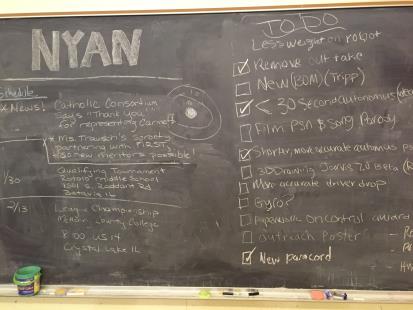 NYAN
Schedule
* News! Catholic Consortium
Says "Thank you"
for representing Carmel
* Ms. Trausch's Sorority
partnering with FIRST,
so new mentors possible!
1/30 Qualifying Tournament
Rotolo middle School
1501 S. Raddant Rd
Batavia IL
2/13 League Championship
McHenry County College
8900 US 14
Crystal Lake IL
TO DO
Less weight on robot
Remove out take
New (BOM) (Tripp)
< 30 Second autonomous
Film PSA & Song Parody
Shorter, more accurate autonomous
3D Drawing 2.0 Beta
More accurate driver drop
Gyro?
Paperwork on control award
outreach Posters
New paracord